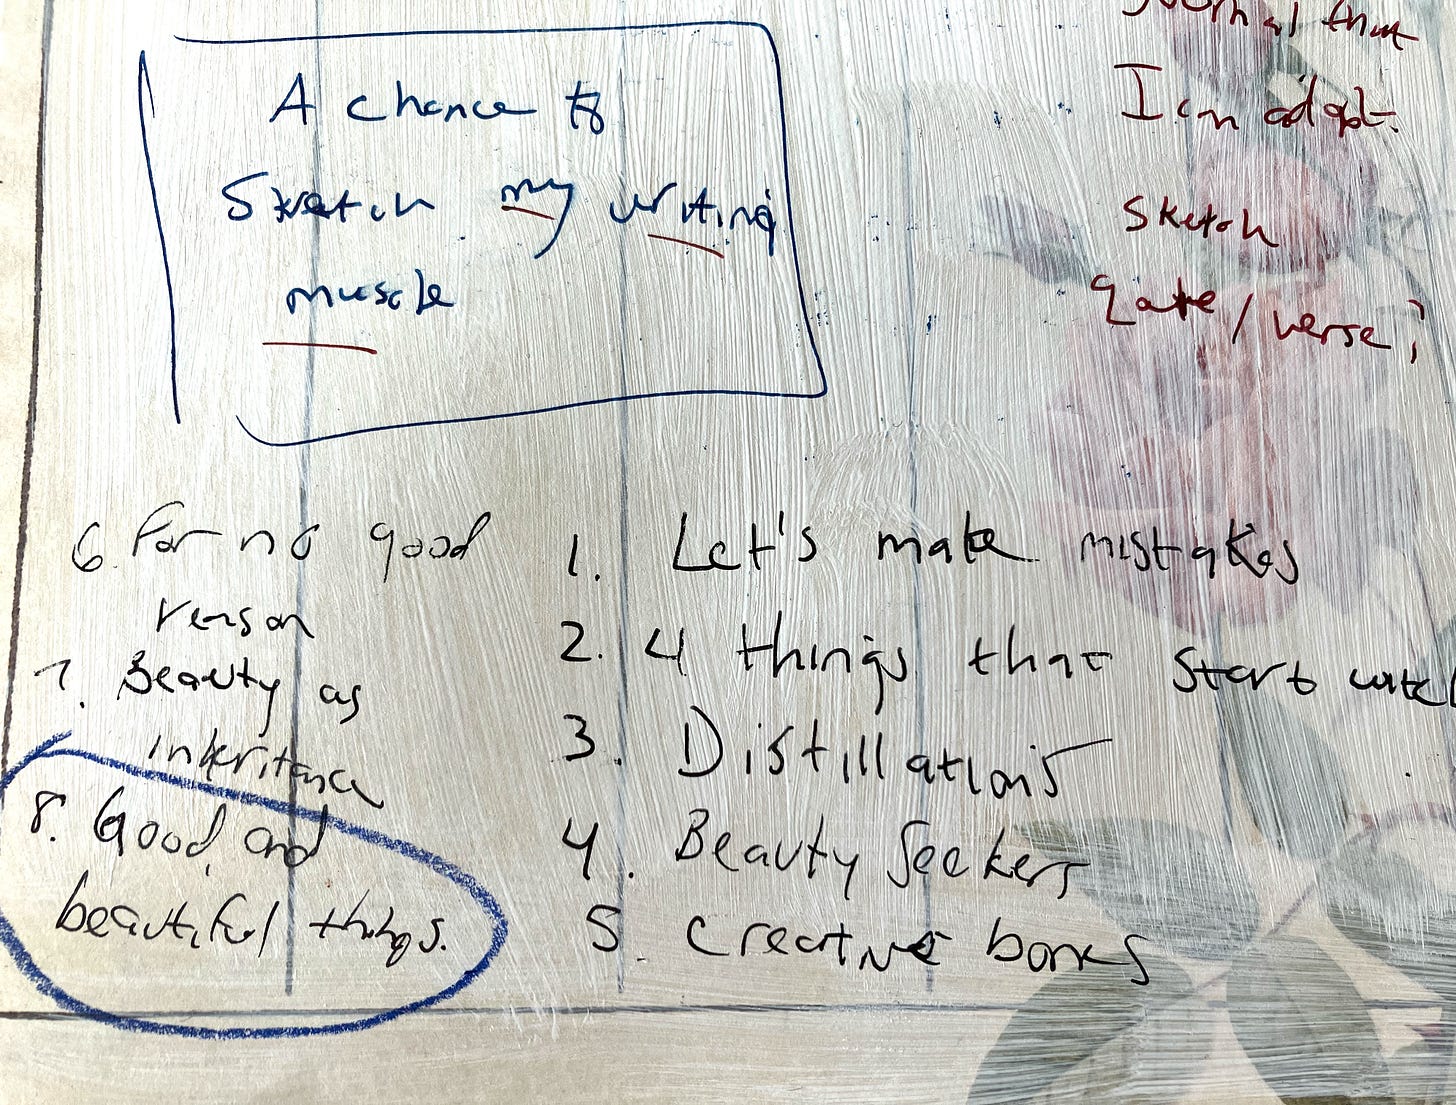 A chance to
Sketch my writing
muscle
Journal that
I can adapt.
Sketch
quote / verse;
1. Let's make mistakes
2. 4 things that start with
3. Distillations
4. Beauty Seekers
5. Creative bones
6. For no good
reason
7. Beauty as
inheritance
8. Good and
beautiful things.